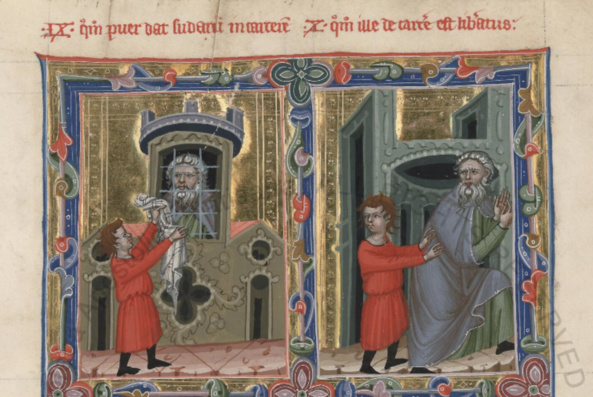 .IX. qm puer dat sudariu in carcere .X. qm ille de carce est libatus: